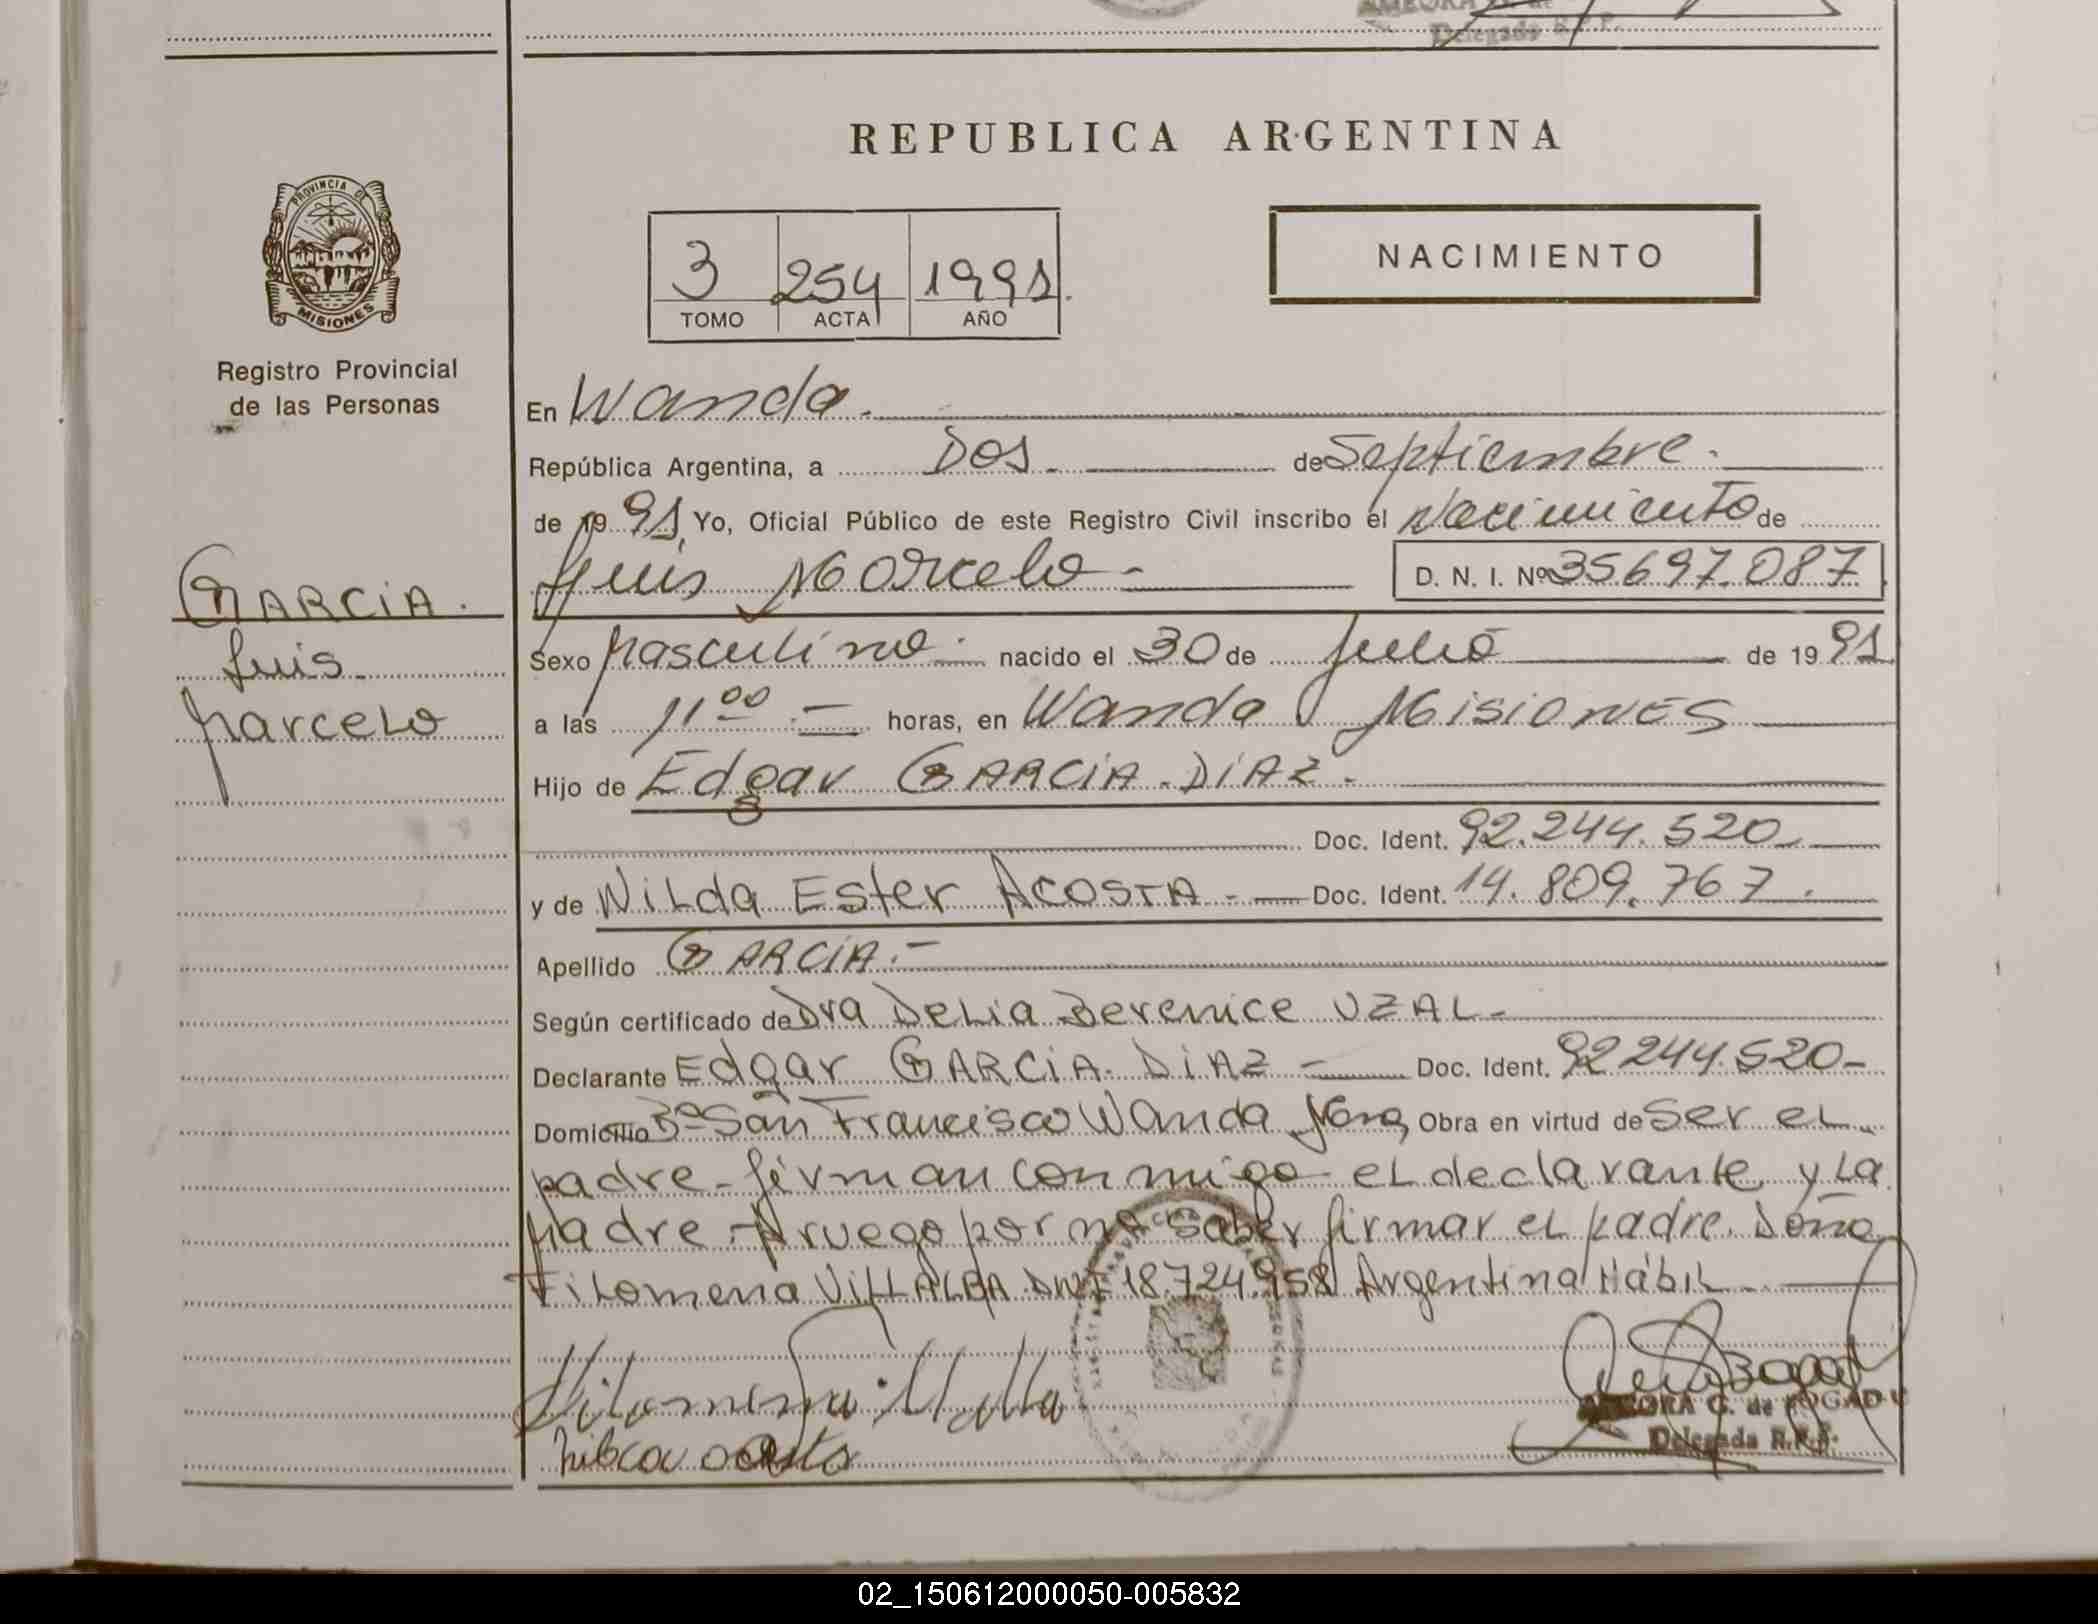 Delegado R.P.P.
REPUBLICA ARGENTINA
PROVINCIA DE
MISIONES
Registro Provincial
de las Personas
3 254 1991.
TOMO ACTA AÑO
NACIMIENTO
En Wanda.
República Argentina, a Dos. de Septiembre.
de 1991, Yo, Oficial Público de este Registro Civil inscribo el Nacimiento de
Luis Marcelo- D. N. I. Nº 35697.087
GARCIA.
Luis
Marcelo
Sexo Masculino. nacido el 30 de Julio de 1991
a las 11 00 .- horas, en Wanda Misiones
Hijo de Edgar GARCIA.DIAZ.
Doc. Ident. 92.244.520
y de Nilda Ester Acosta.- Doc. Ident. 14.809.767.
Apellido GARCIA.-
Según certificado de Dra Delia Berenice UZAL-
Declarante Edgar GARCIA.DIAZ- Doc. Ident. 92244.520-
Domicilio Bº San Francisco Wanda Obra en virtud de ser el
padre-firman conmigo el declarante y La
Madre-A ruego por no saber firmar el padre. Doña
Filomena VILLALBA DNI 18.724.958 Argentina Hábil
AMEORA G. de BOGADO
Delegada R.P.P.
02_150612000050-005832